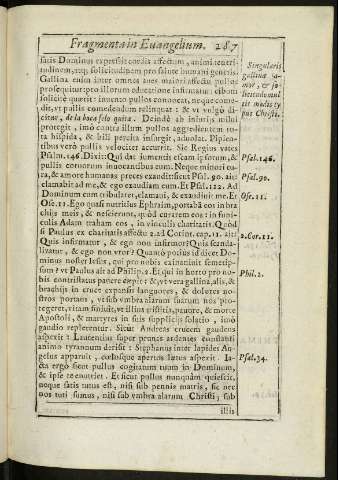 Fragmenta in Euangelium. 287
satis Dominus expressit cordis affectum, animi teneri-
tudinem, atq; solicitudinem pro salute humani generis.
Gallina enim inter omnes aues maiori affectu pullos
prosequitur: pro illorum educatione infirmatur: cibum
solicitè quærit: inuento pullos conuocat, neque come-
dit, vt pullis comedendum relinquat: & vt vulgò di-
citur, de la boca selo quita. Deinde ab iniurijs milui
protegit, imò contra illum pullos aggredientem to-
ta hispida, & bili percita insurgit, aduolat. Pipien-
tibus verò pullis velociter accurrit. Sic Reges vates
Psalm. 146. Dixit: Qui dat iumentis escam ipsorum, &
pullis coruorum inuocantibus eum. Neque minori cu-
ra, & amore humanas preces exaudit: sicut Psal. 90. ait:
clamabit ad me, & ego exaudiam eum. Et Psal. 122. Ad
Dominum cum tribularer, clamaui, & exaudiuit me. Et
Ose. 11. Ego quasi nutricius Ephraim, portabã eos in bra
chijs meis, & nescierunt, quòd curarem eos: in funi-
culis Adam traham eos, in vinculis charitatis. Quòd
si Paulus ex charitatis affectu 2. ad Corint. cap. 11. ait:
Quis infirmatur, & ego non infirmor? Quis scanda-
lizatur, & ego non vror? Quantò potius id dicet Do-
minus noster Iesus, qui pro nobis exinaniuit semetip-
sum? vt Paulus ait ad Philip. 2. Et qui in horto pro no-
bis contristatus pauere cœpit: &, vt vera gallina, alis, &
brachijs in cruce expansis languores, & dolores no-
stros portans, vt sub vmbra alarum suarum nos pro-
tegeret, vitam finiuit, vt illius exfistis, pauore, & morte
Apostoli, & martyres in suis supplicijs solatio, imò
gaudio replerentur. Sicùt Andreas crucem gaudens
aspexit: Laurentius super prunas ardentes constanti
animo tyrannum derisit: Stephanus inter lapides An-
gelus apparuit, cœlosque apertos lætus aspexit. Ia-
cta ergò sicut pullus cogitatum tuum in Dominum,
& ipse te enutriet. Et sicut pullus nunquàm quiescit,
neque satis tutus est, nisi sub pennis matris, sic nec
nos tuti sumus, nisi sub vmbra alarum Christi, sub
illis
Singularis
gallinæ a-
mor, & so-
licitudo mul
tis modis ty-
pus Christi.
Psal. 146.
Psal. 90.
Ose. 11.
2. Cor. 11.
Phil. 2.
Psal. 34.